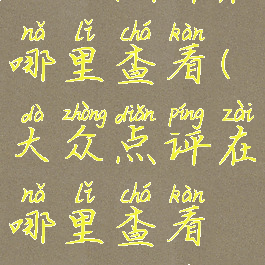 nǎ lǐ chá kàn
哪里查看(
dà zhòng diǎn píng zài
大众点评在
nǎ lǐ chá kàn
哪里查看